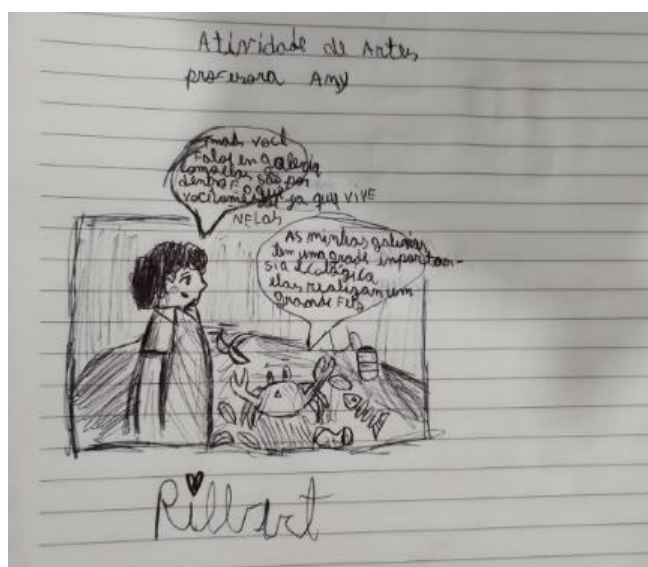 Atividade de Artes
profesora Any
mas você
falou en galeria
como elas são por
dentro
já que vive
NELAS
As minhas galerias
tem uma grade importan-
sia ecológica
elas realizam um
grande
Rilbert